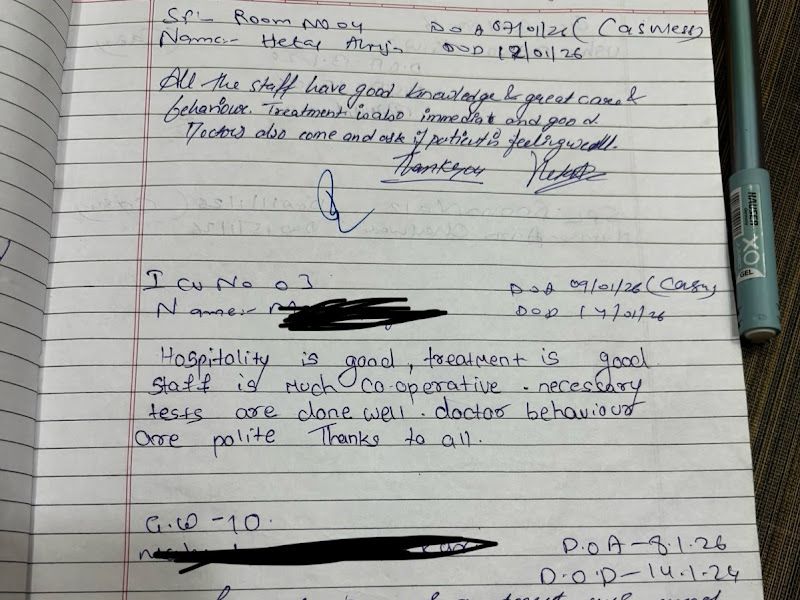 Spl- Room No 04 DOA 07/01/26 (Casuless)
Name:- Hetal DOD 12/01/26
All the staff have good knowledge & great care &
behaviour. Treatment is also immediat and good.
Doctors also come and ask if patient is feeling well.
Thankyou
I cu No 03 DOA 09/01/26 (Casu)
Name:- DOD 14/01/26
Hospitality is good, treatment is good
staff is Much co-operative. necessary
tests are done well. doctor behaviour
are polite Thanks to all.
G.W - 10.
D.O.A - 8.1.26
D.O.D - 14.1.24
HAUSER
XO
GEL